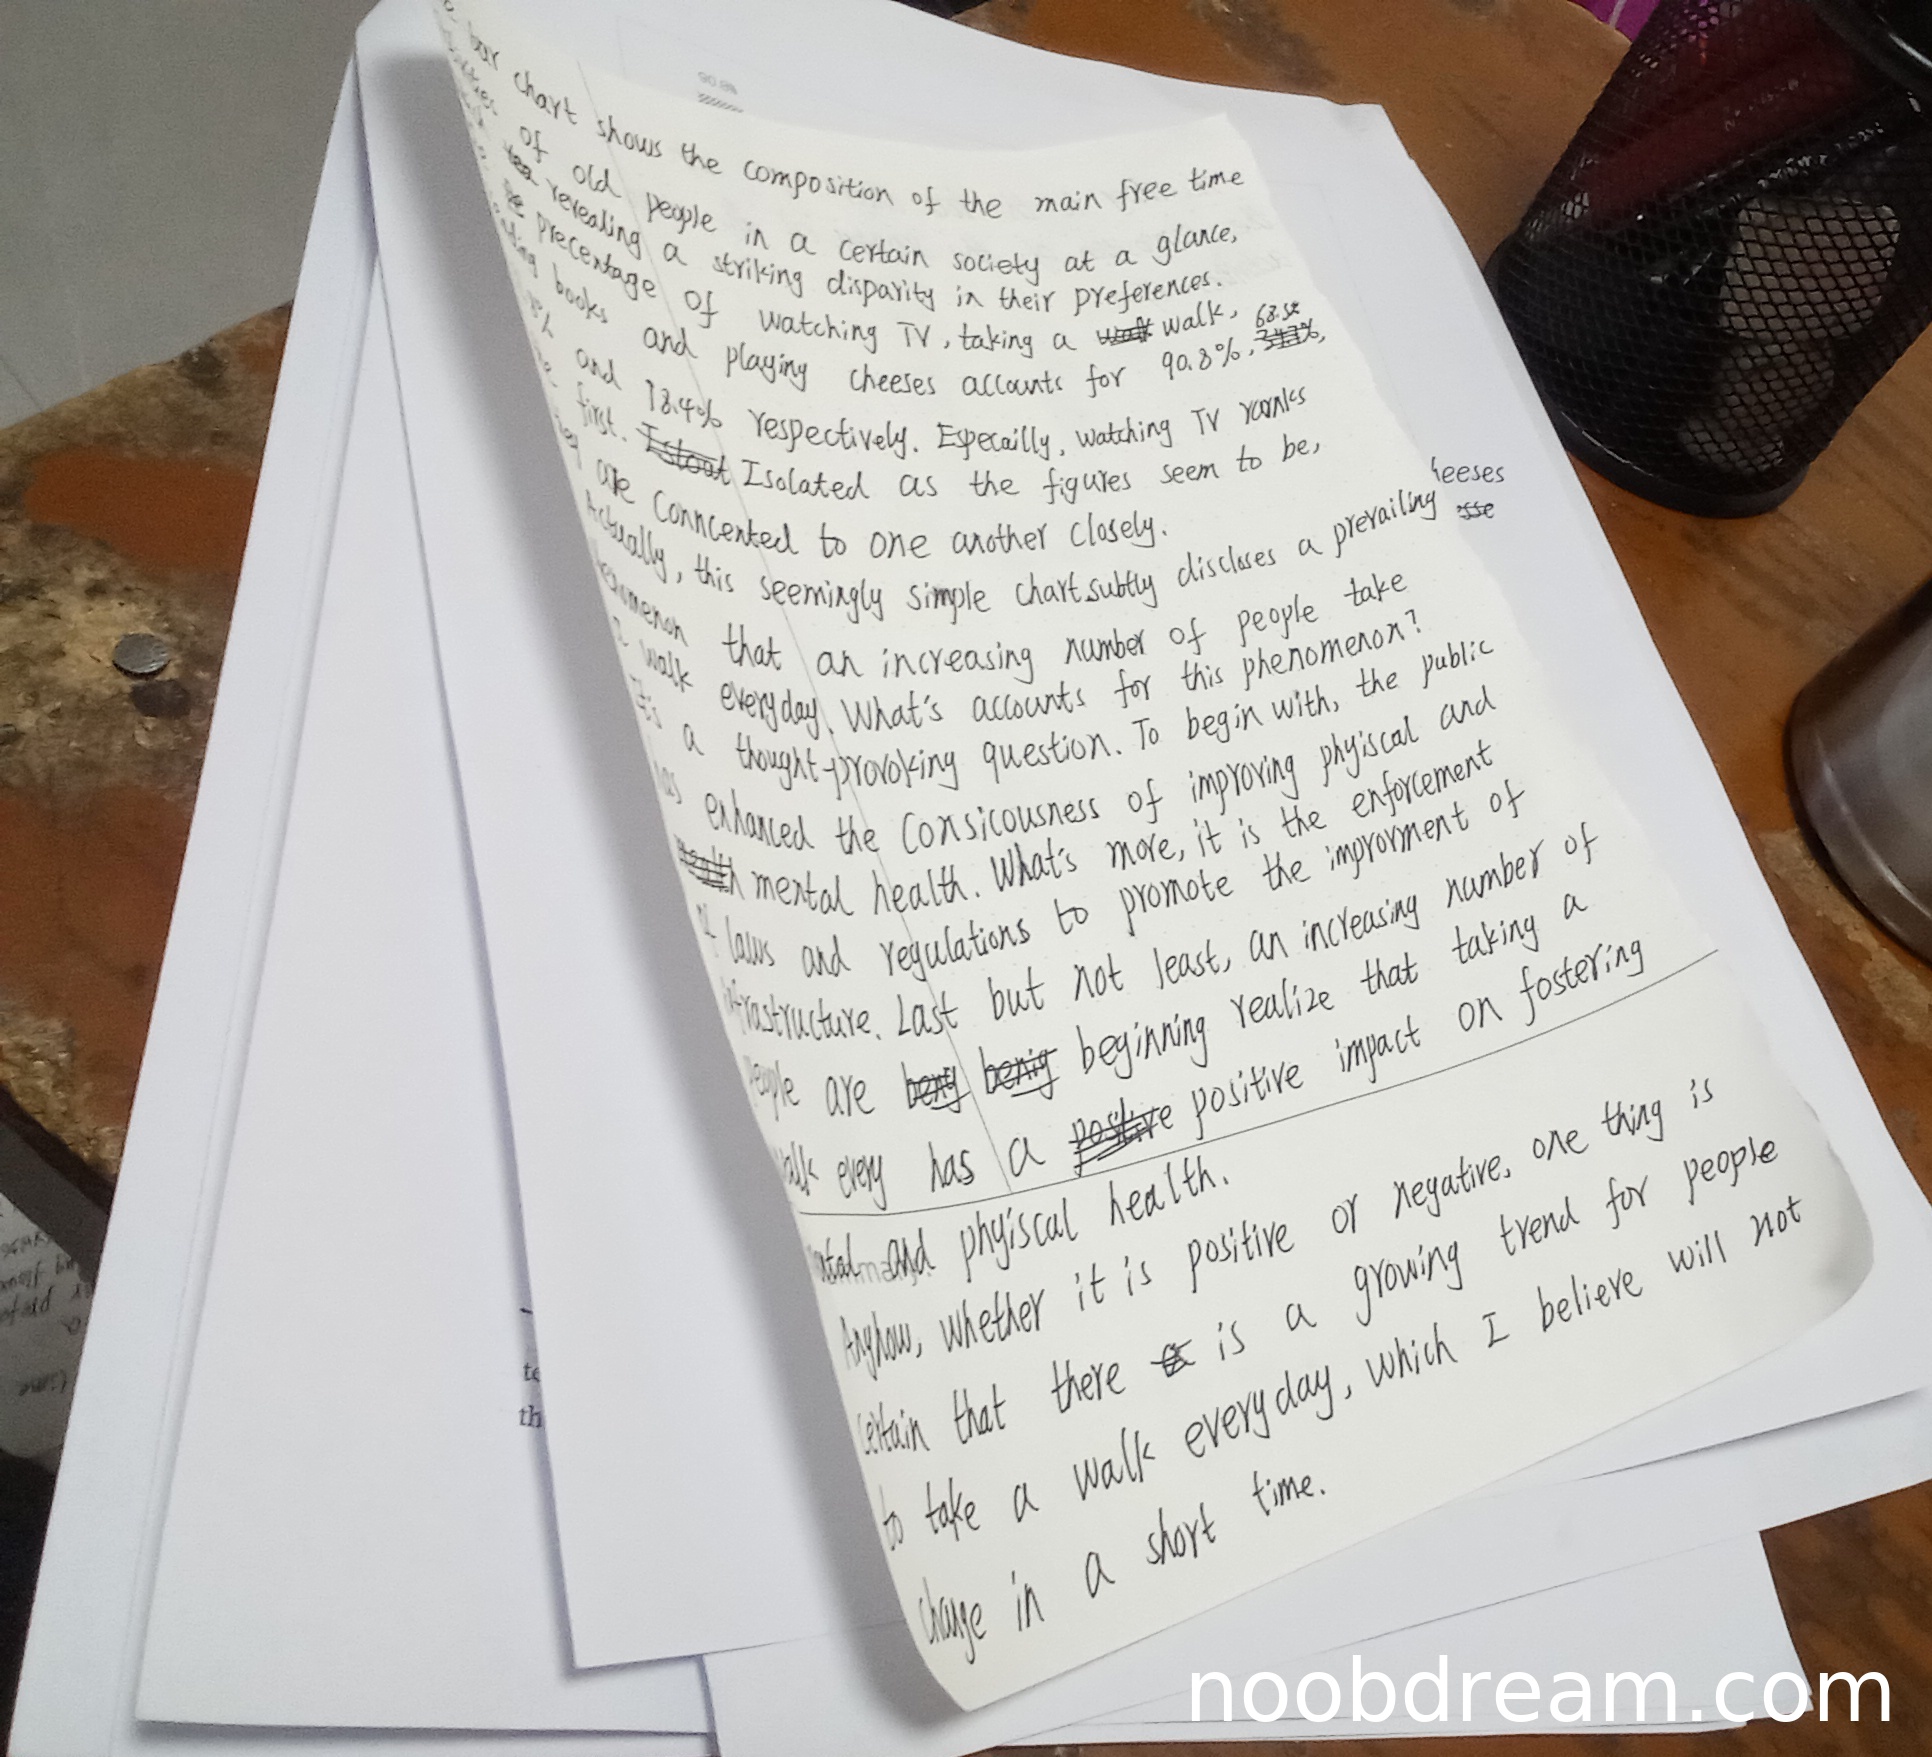 bar chart shows the composition of the main free time
of old people in a certain society at a glance,
revealing a striking disparity in their preferences.
precentage of watching TV, taking a walk,
books and playing cheeses accounts for 90.8%, 68.5%
and 18.4% respectively. Especailly, watching TV rarnks
first. Isolated as the figures seem to be,
are Conncented to one another closely.
Actually, this seemingly simple chart subtly discloses a prevailing
that an increasing number of people take
walk everyday. What's accounts for this phenomenon?
It's a thought-provoking question. To begin with, the public
has enhanced the Consicousness of improving phyiscal and
mental health. What's more, it is the enforcement
laws and regulations to promote the improvment of
infrastructure. Last but not least, an increasing number of
people are beginning realize that taking a
walk every has a positive impact on fostering
and phyiscal health.
Anyhow, whether it is positive or negative, one thing is
certain that there is a growing trend for people
to take a walk everyday, which I believe will not
change in a short time.
heeses
te
th
noobdream.com